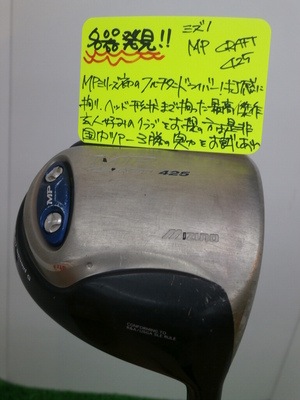 名器発見!!
ミズノ
MP CRAFT
425
MPシリーズ初のフルチタンドライバー!打感に
拘り、ヘッド形状まで拘った最高傑作
玄人好みのクラブをお探しの方は是非
国内ツアー三勝の実力をお試しあれ
425
MP
MIZUNO
CONFORMING TO